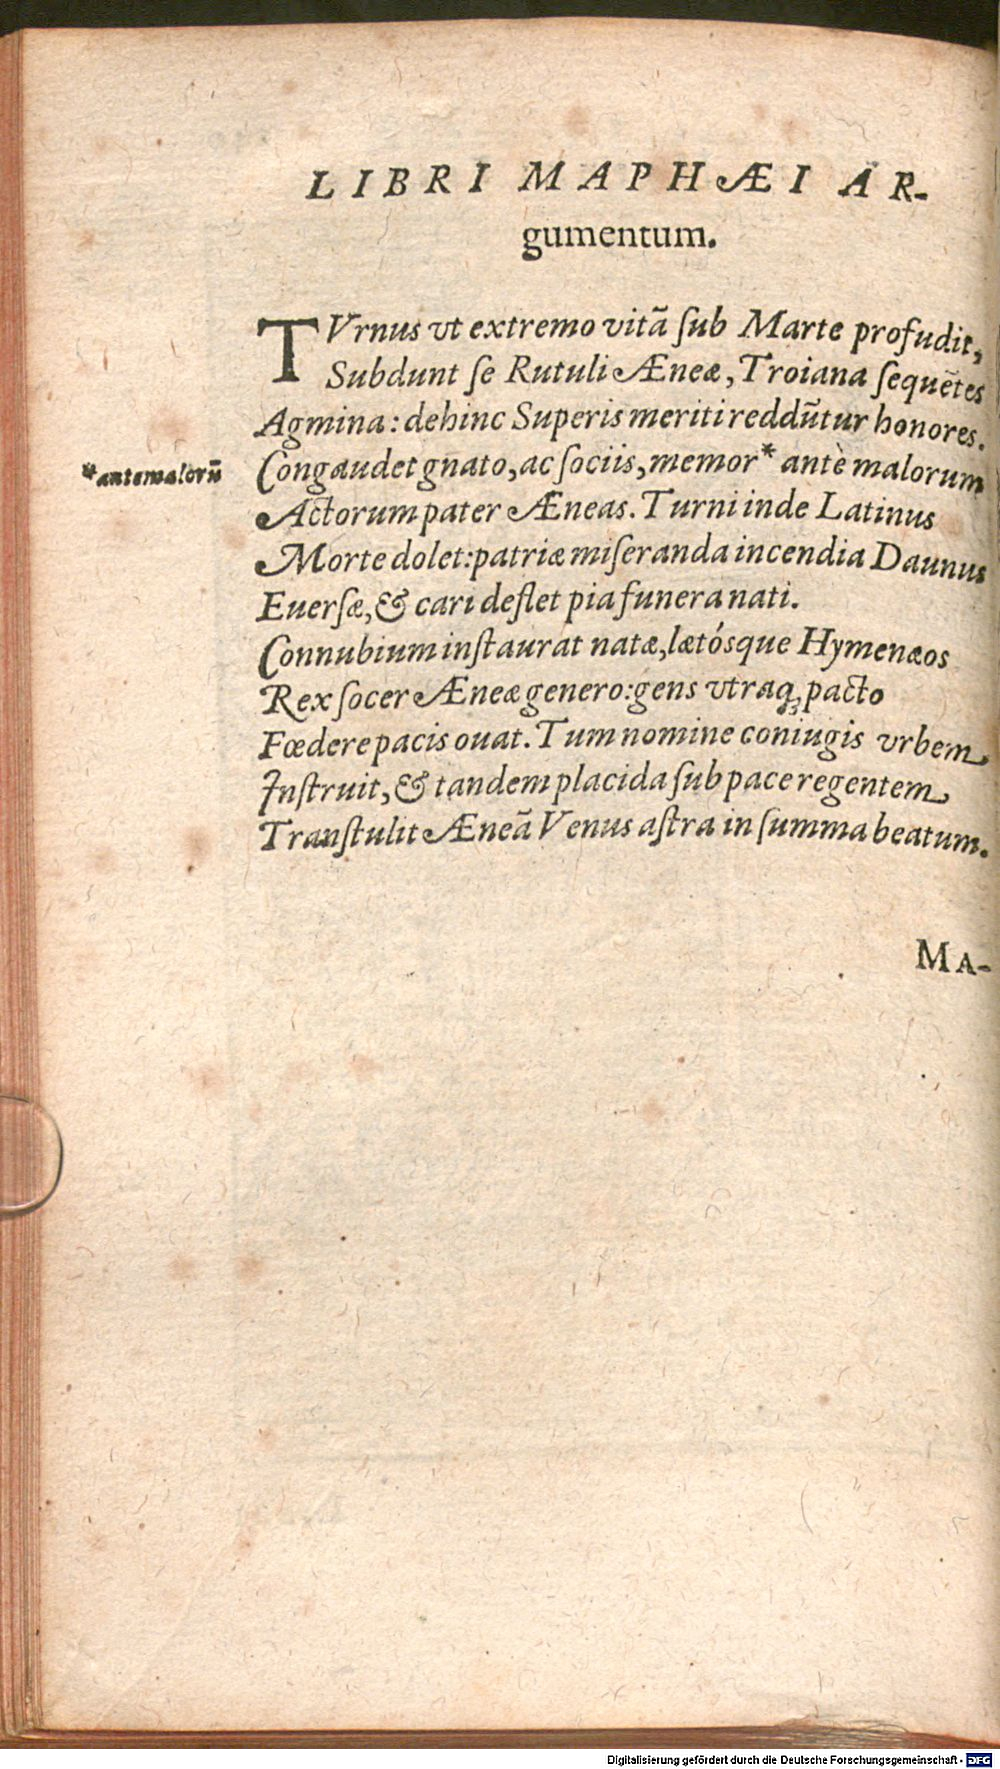 LIBRI MAPHÆI AR-
gumentum.
TVrnus vt extremo vitã ſub Marte profudit,
Subdunt ſe Rutuli Æneæ, Troiana ſequẽtes
Agmina: dehinc Superis meriti reddũtur honores.
*antemalorũ
Congaudet gnato, ac ſociis, memor* antè malorum
Actorum pater Æneas. Turni inde Latinus
Morte dolet: patriæ miſeranda incendia Daunus
Euerſæ, & cari deflet pia funera nati.
Connubium inſtaurat natæ, lætósque Hymenæos
Rex ſocer Æneæ genero: gens vtraq; pacto
Fœdere pacis ouat. Tum nomine coniugis vrbem
Inſtruit, & tandem placida ſub pace regentem
Tranſtulit Æneã Venus aſtra in ſumma beatum.
MA-
Digitalisierung gefördert durch die Deutsche Forschungsgemeinschaft - DFG